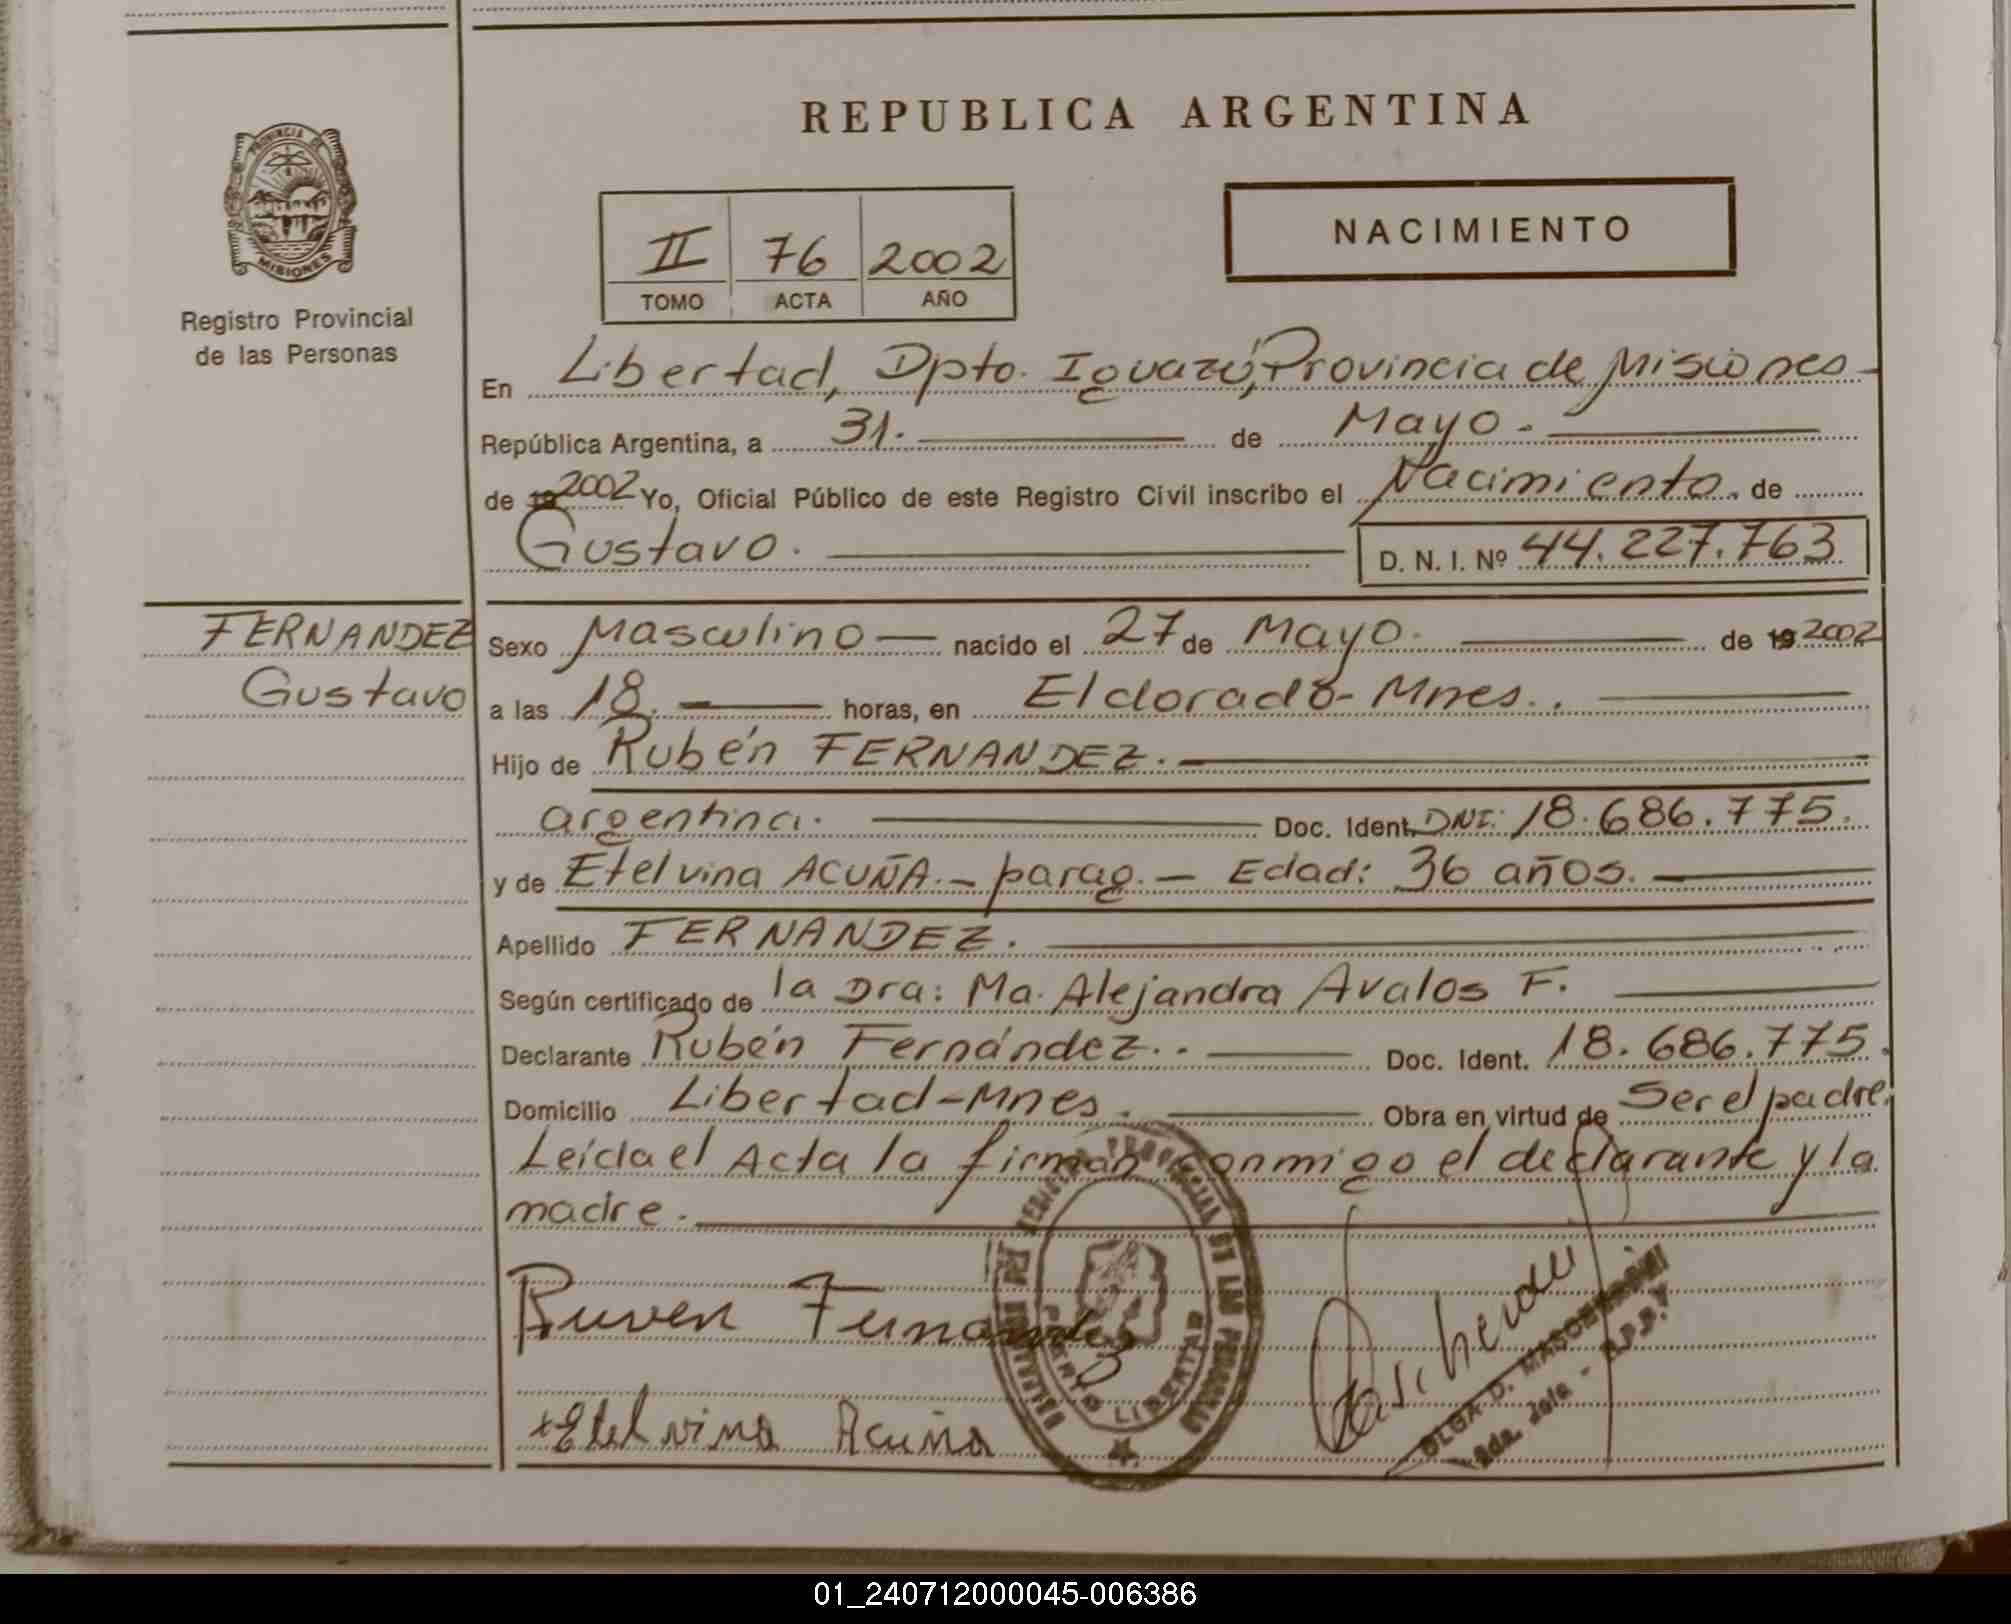 REPUBLICA ARGENTINA
PROVINCIA DE
MISIONES
Registro Provincial
de las Personas
II 76 2002
TOMO ACTA AÑO
NACIMIENTO
En Libertad, Dpto. Iguazú, Provincia de Misiones
República Argentina, a 31. de Mayo.
de 19 2002 Yo, Oficial Público de este Registro Civil inscribo el Nacimiento. de
Gustavo. D. N. I. Nº 44.227.763
FERNANDEZ
Gustavo
Sexo Masculino nacido el 27 de Mayo. de 19 2002
a las 18. horas, en Eldorado - Mnes..
Hijo de Rubén FERNANDEZ.
argentina. Doc. Ident. DNI: 18.686.775.
y de Etelvina ACUÑA. - parag. - Edad: 36 años.
Apellido FERNANDEZ.
Según certificado de la Dra: Ma. Alejandra Avalos F.
Declarante Rubén Fernández.. Doc. Ident. 18.686.775.
Domicilio Libertad - Mnes. Obra en virtud de Ser el padre.
Leída el Acta la firman conmigo el declarante y la
madre.
Ruven Fernandez
Etelvina Acuña
PUERTO LIBERTAD
OLGA D.
01_240712000045-006386